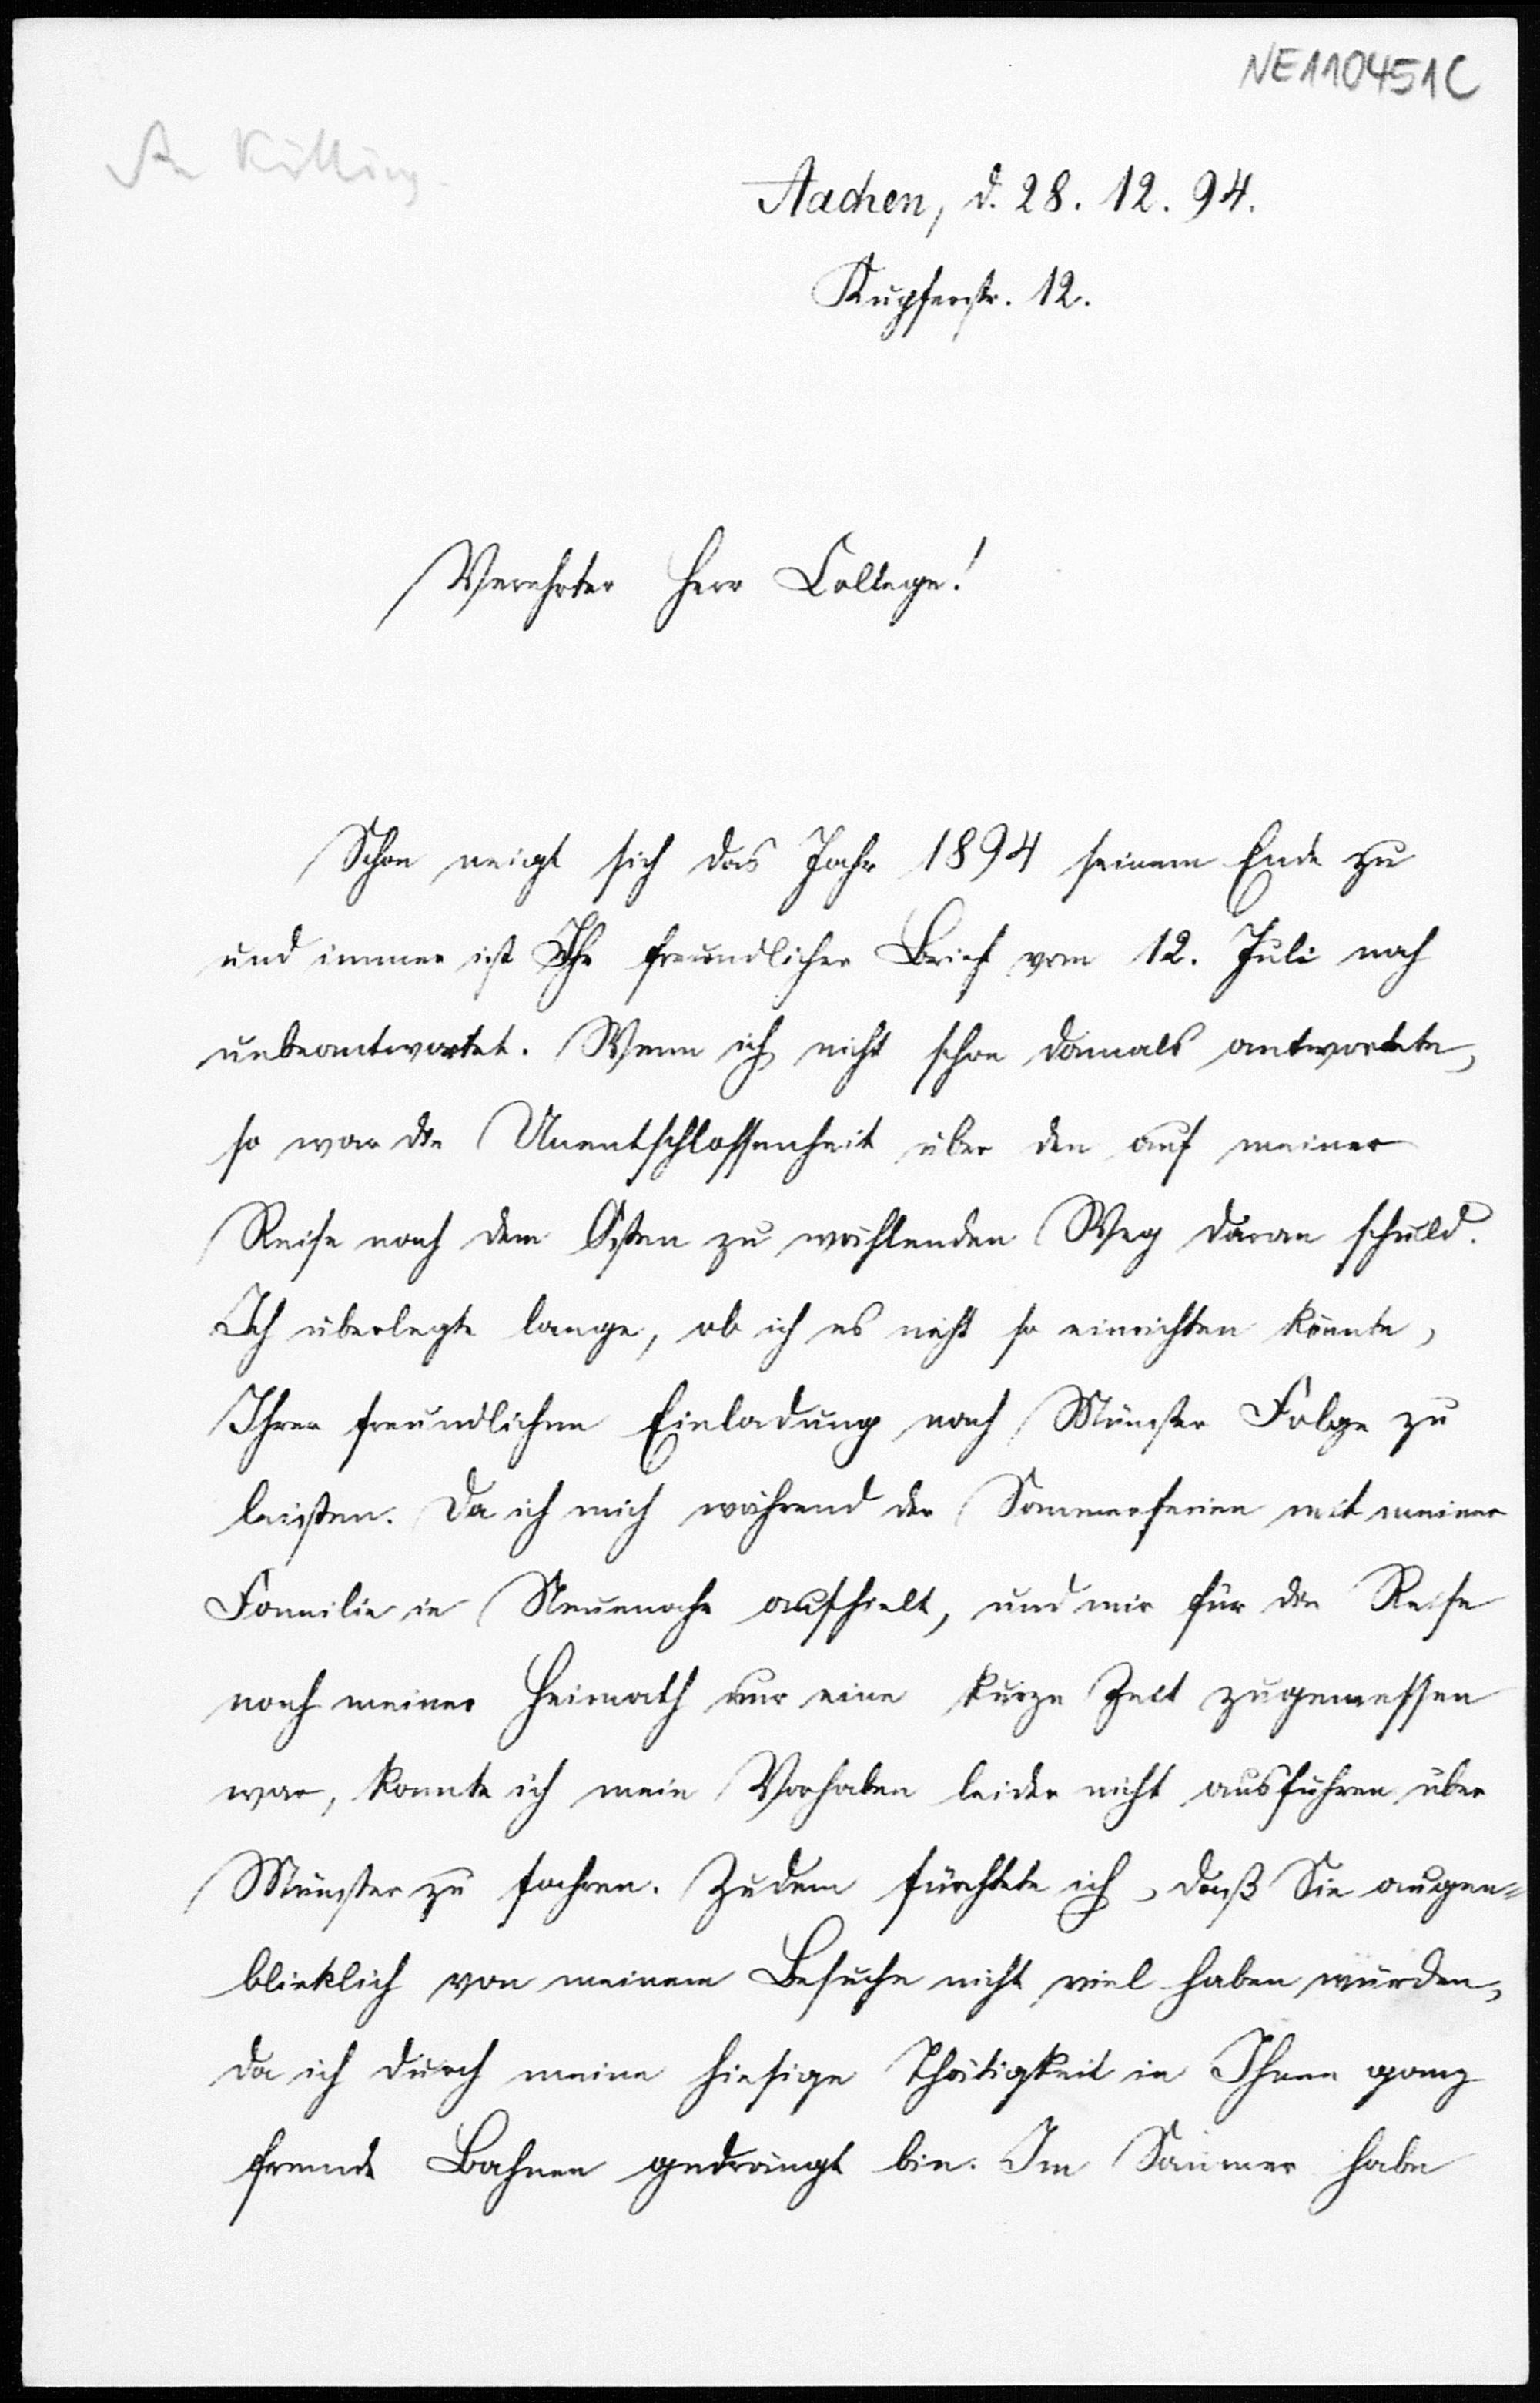 NE110451C
An Killing
Aachen, d. 28. 12. 94.
Kupferstr. 12.
Verehrter Herr College!
Schon neigt sich das Jahr 1894 seinem Ende zu
und immer ist Ihr freundlicher Brief vom 12. Juli noch
unbeantwortet. Wenn ich nicht schon damals antwortete,
so war die Unentschlossenheit über den auf meiner
Reise nach dem Osten zu wählenden Weg daran schuld.
Ich überlegte lange, ob ich es nicht so einrichten könnte,
Ihrer freundlichen Einladung nach Münster Folge zu
leisten. Da ich mich während der Sommerferien mit meiner
Familie in Neuenahr aufhielt, und mir für die Reise
nach meiner Heimath nur eine kurze Zeit zugemessen
war, konnte ich mein Vorhaben leider nicht ausführen über
Münster zu fahren. Zudem fürchtete ich, daß Sie augen-
blicklich von meinem Besuche nicht viel haben würden,
da ich durch meine hiesige Thätigkeit in Ihnen ganz
fremde Bahnen gedrängt bin. Im Sommer habe